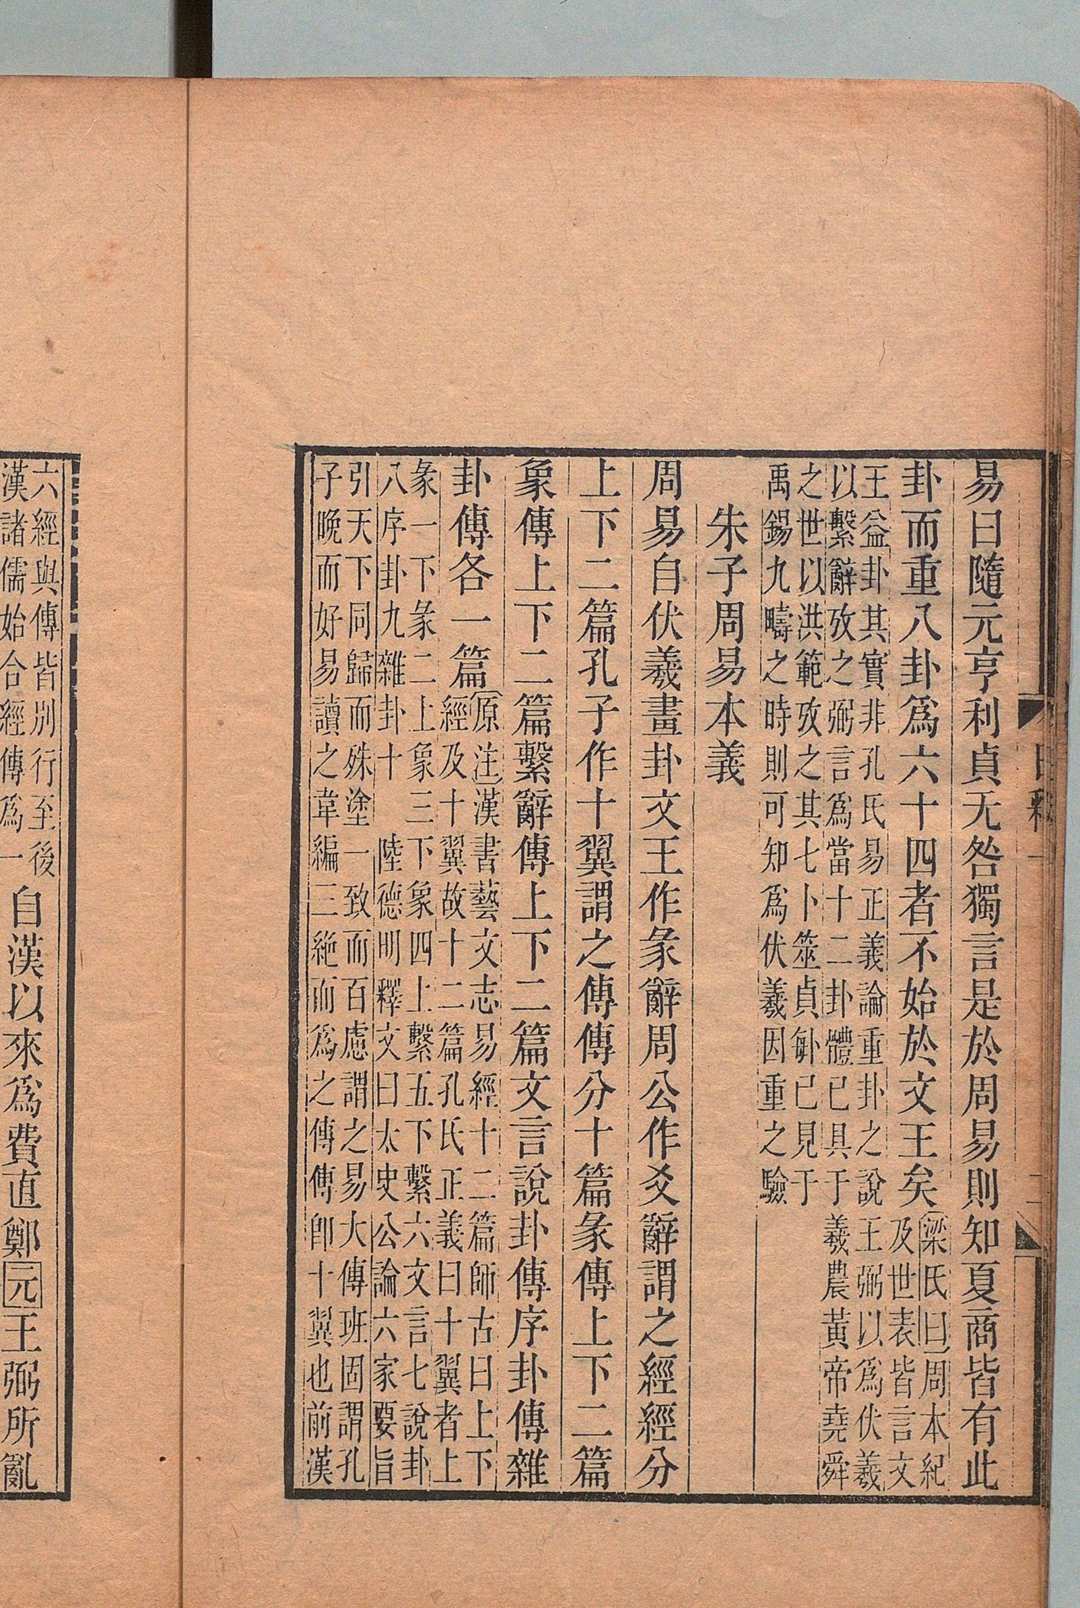 易曰隨元亨利貞无咎獨言是於周易則知夏商皆有此
卦而重八卦爲六十四者不始於文王矣
梁氏曰周本紀
及世表皆言文
王益卦其實非孔氏易正義論重卦之說王弼以爲伏羲
以繫辭攷之弼言爲當十二卦體已具于羲農黃帝堯舜
之世以洪範攷之其七卜筮貞𠧩已見于
禹錫九疇之時則可知爲伏羲因重之驗
朱子周易本義
周易自伏羲畫卦文王作彖辭周公作爻辭謂之經經分
上下二篇孔子作十翼謂之傳傳分十篇彖傳上下二篇
象傳上下二篇繫辭傳上下二篇文言說卦傳序卦傳雜
卦傳各一篇
原注漢書藝文志易經十二篇師古曰上下
經及十翼故十二篇孔氏正義曰十翼者上
彖一下彖二上象三下象四上繫五下繫六文言七說卦
八序卦九雜卦十 陸德明釋文曰太史公論六家要旨
引天下同歸而殊塗一致而百慮謂之易大傳班固謂孔
子晚而好易讀之韋編三絕而爲之傳傳即十翼也前漢
六經與傳皆別行至後
漢諸儒始合經傳爲一
自漢以來爲費直鄭元王弼所亂